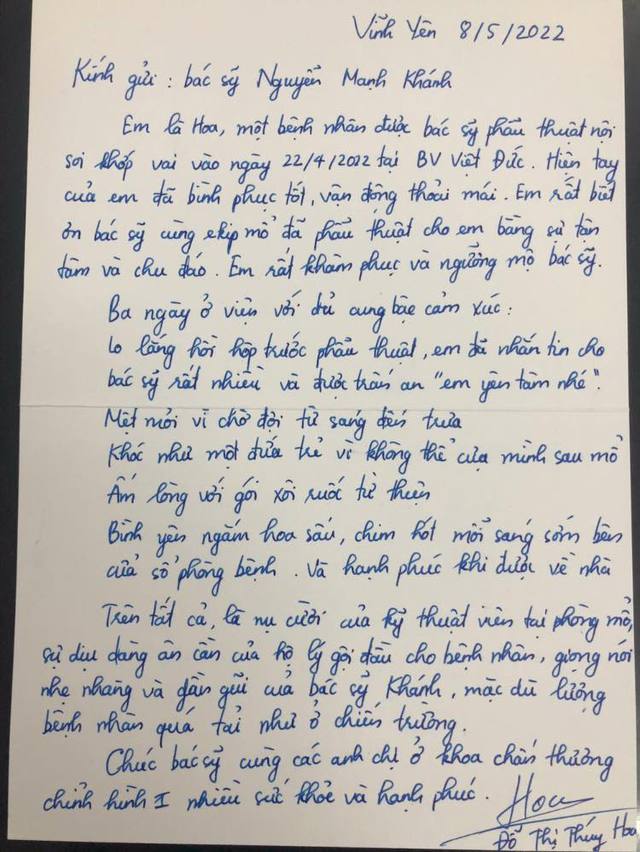 Vĩnh Yên 8/5/2022
Kính gửi : bác sỹ Nguyễn Mạnh Khánh
Em là Hoa, một bệnh nhân được bác sỹ phẫu thuật nội
soi khớp vai vào ngày 22/4/2022 tại BV Việt Đức. Hiện tay
của em đã bình phục tốt, vận động thoải mái. Em rất biết
ơn bác sỹ cùng ekip mổ đã phẫu thuật cho em bằng sự tận
tâm và chu đáo. Em rất khâm phục và ngưỡng mộ bác sỹ.
Ba ngày ở viện với đủ cung bậc cảm xúc :
lo lắng hồi hộp trước phẫu thuật, em đã nhắn tin cho
bác sỹ rất nhiều và được trấn an "em yên tâm nhé".
Mệt mỏi vì chờ đợi từ sáng đến trưa
Khóc như một đứa trẻ vì không thể của mình sau mổ
Ấm lòng với gói xôi ruốc từ thiện
Bình yên ngắm hoa sấu, chim hót mỗi sáng sớm bên
cửa sổ phòng bệnh. Và hạnh phúc khi được về nhà
Trên tất cả, là nụ cười của kỹ thuật viên tại phòng mổ,
sự dịu dàng ân cần của hộ lý gội đầu cho bệnh nhân, giọng nói
nhẹ nhàng và gần gũi của bác sỹ Khánh, mặc dù lượng
bệnh nhân quá tải như ở chiến trường.
Chúc bác sỹ cùng các anh chị ở khoa chấn thương
chỉnh hình I nhiều sức khỏe và hạnh phúc.
Hoa
Đỗ Thị Thúy Hoa